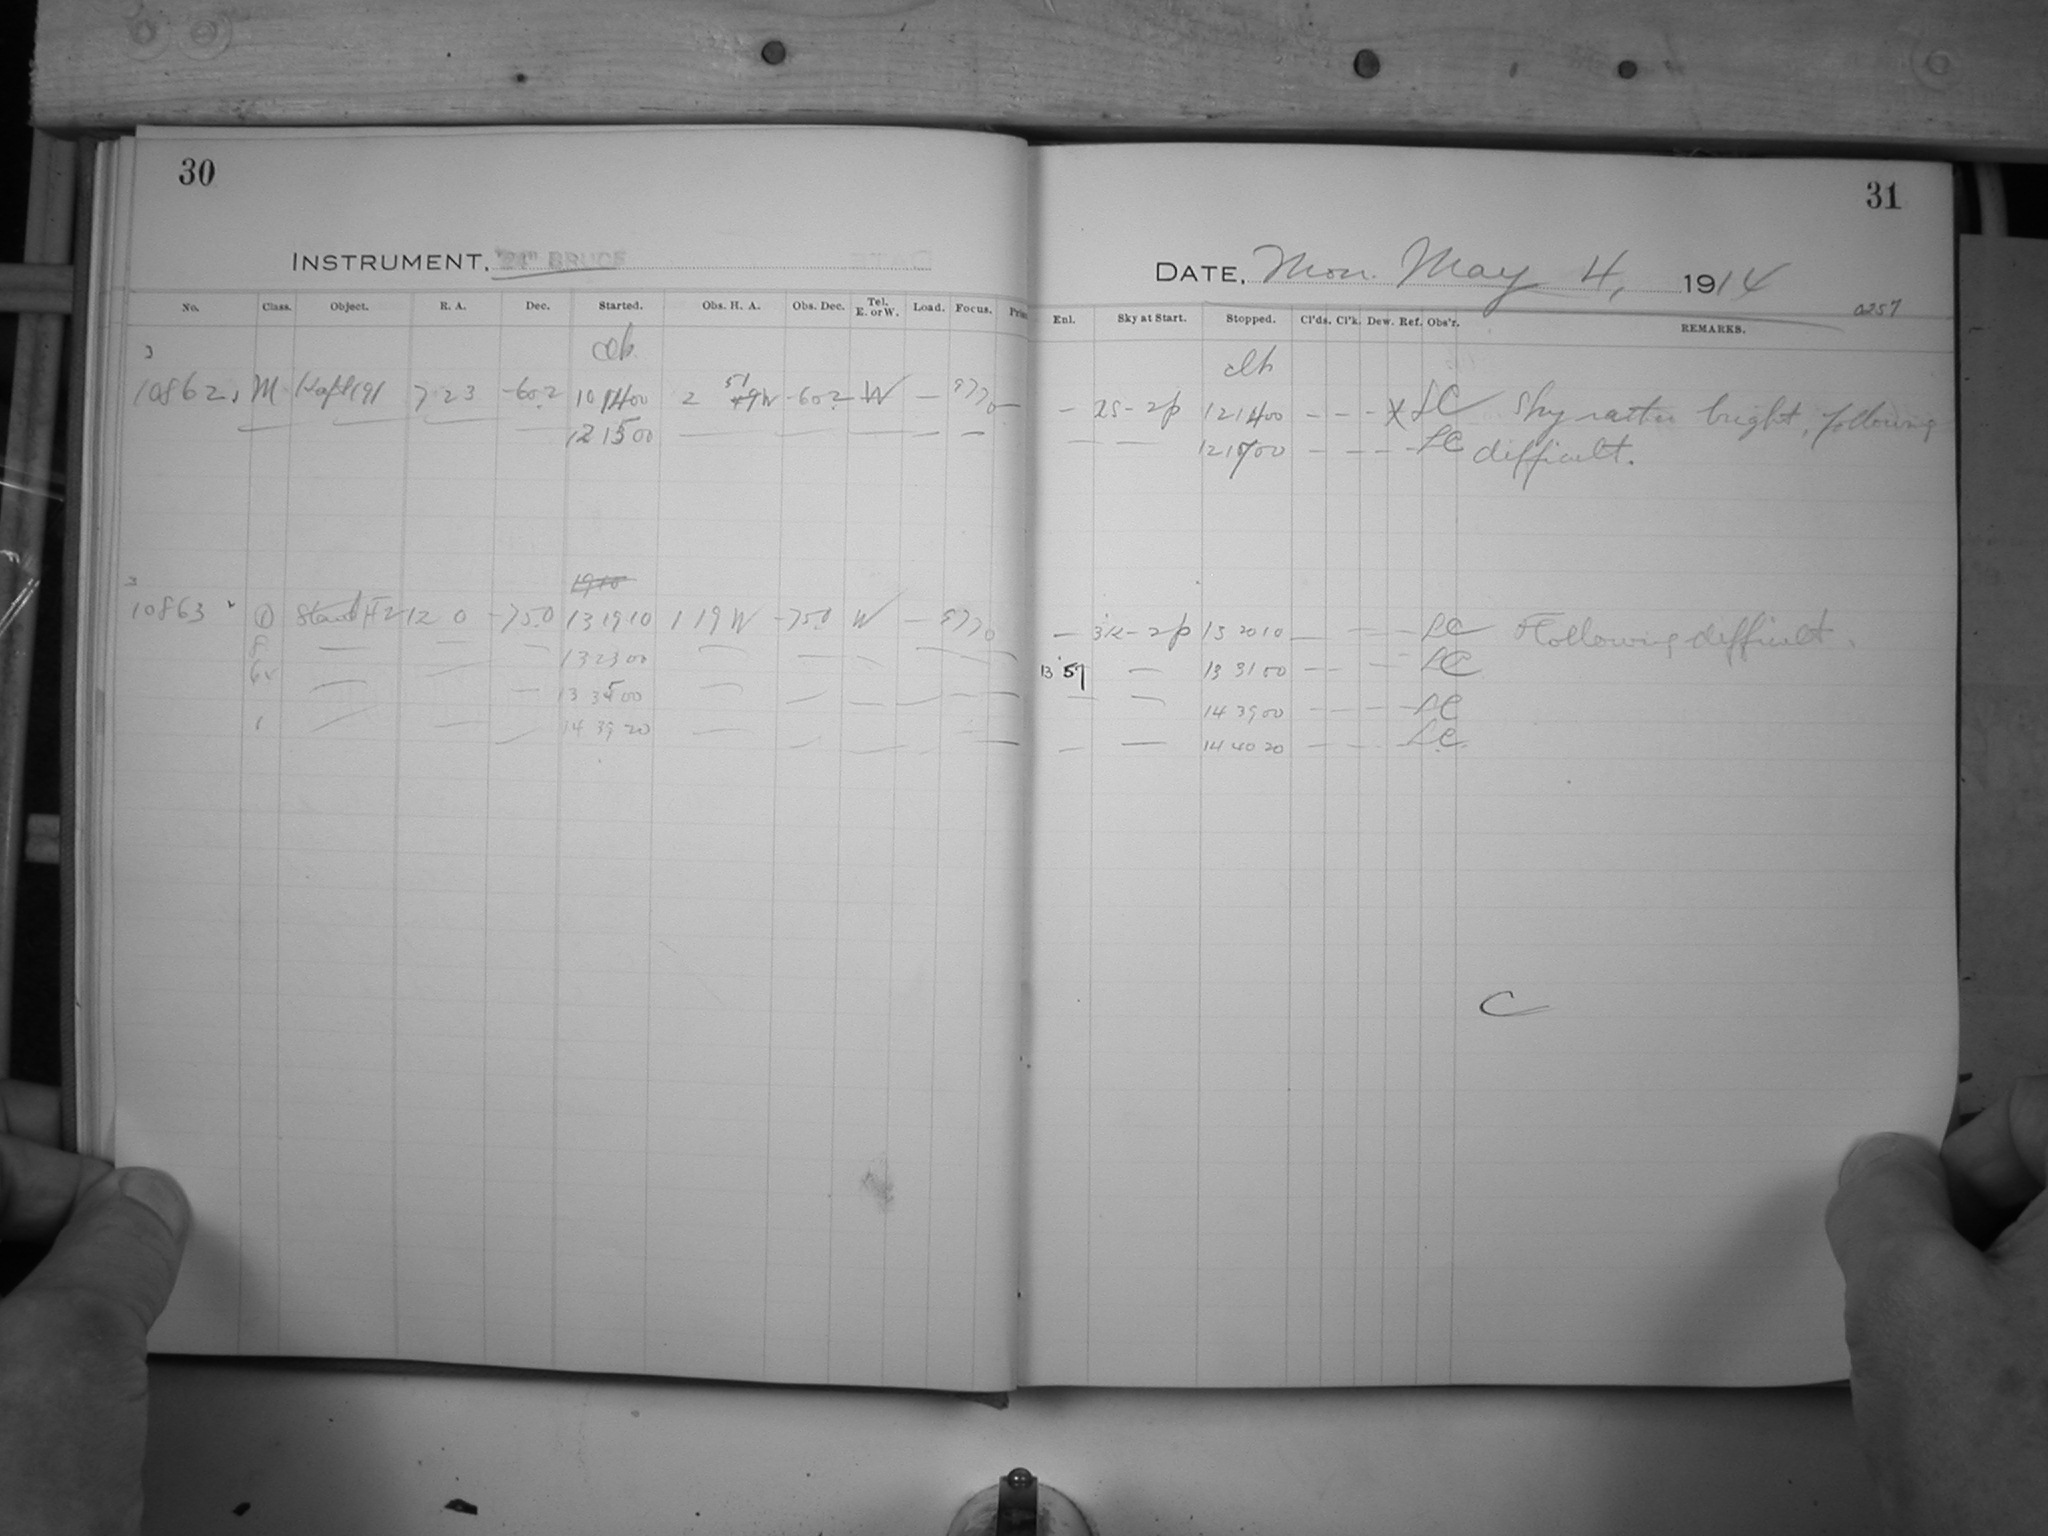 30
INSTRUMENT, "24" BRUCE
No. Class. Object. R. A. Dec. Started. Obs. H. A. Obs. Dec. Tel. E. or W. Load. Focus.
10862, M 7 23 -60.2 10 14 00 2 51 W -60.2 W — 9770 —
— — — — 12 15 00 — — — — —
10863 12 0 -75.0 13 19 10 1 19 W -75.0 W — 9770
8 — — — 13 23 00 — — — — —
— — — 13 35 00 — — — — —
1 — — — 14 39 20 — — — — —
31
DATE, Mon. May 4, 1914
0257
Enl. Sky at Start. Stopped. Cl'ds. Cl'k. Dew. Ref. Obs'r. REMARKS.
— 2S-2p 12 14 00 - - - X LC Sky rather bright, following
— — 12 17 00 - - - - LC difficult.
— 3K-2p 13 20 10 — — — LC Following difficult.
13 57 — 13 31 00 — — — LC
— — 14 39 00 — — — LC
— — 14 40 20 — — — LC
C